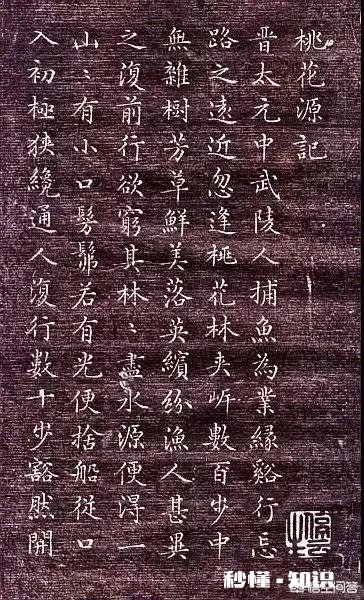 桃花源記
晉太元中武陵人捕魚為業緣谿行忘
路之遠近忽逢桃花林夾岍數百步中
無雜樹芳草鮮美落英繽紛漁人甚異
之復前行欲窮其林〻盡水源便得一
山〻有小口髣髴若有光便捨船從口
入初極狹纔通人復行數十步豁然開
秒懂·知识
悟空问答